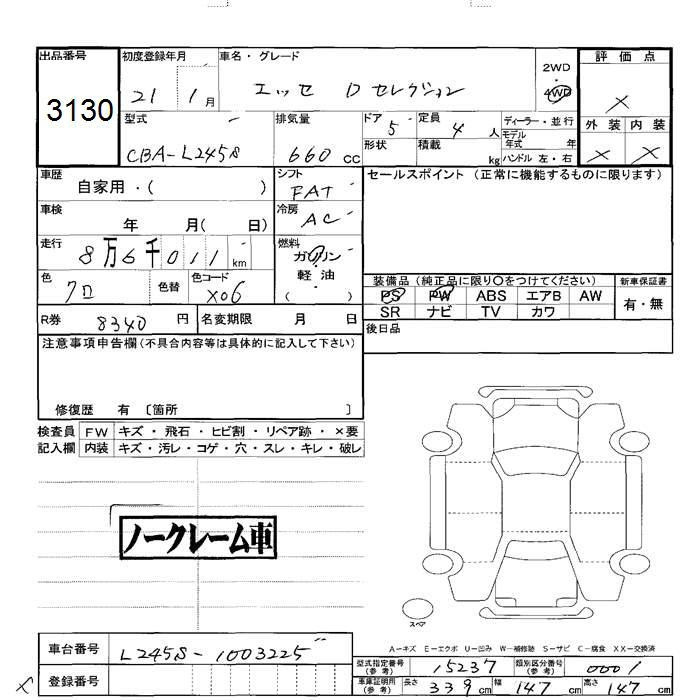 出品番号
3130
初度登録年月
21 1月
車名・グレード
エッセ Dセレクション
2WD
・
4WD
評価点
×
外装 内装
× ×
型式
CBA-L245S
排気量
660 cc
ドア 5
定員 4 人
ディーラー・並行
モデル年式 年
形状
積載 kg
ハンドル 左・右
車歴
自家用・( )
シフト
FAT
セールスポイント (正常に機能するものに限ります)
車検
年 月( 日)
冷房
AC
走行
8万6千011km
燃料
ガソリン
・
軽油
( )
色
クロ
色替
色コード
X06
装備品 (純正品に限り〇をつけてください)
新車保証書
PS PW ABS エアB AW
SR ナビ TV カワ
有・無
R券 8340 円
名変期限 月 日
後日品
注意事項申告欄(不具合内容等は具体的に記入して下さい)
修復歴 有 〔箇所 〕
検査員記入欄
FW キズ・飛石・ヒビ割・リペア跡・×要
内装 キズ・汚レ・コゲ・穴・スレ・キレ・破レ
ノークレーム車
スペア
A-キズ E-エクボ U-凹み W-補修跡 S-サビ C-腐食 XX-交換済
車台番号 L245S-1003225
型式指定番号(参考) 15237
類別区分番号(参考) 0001
× 登録番号
車庫証明用(参考) 長さ 339cm 幅 147cm 高さ 147cm